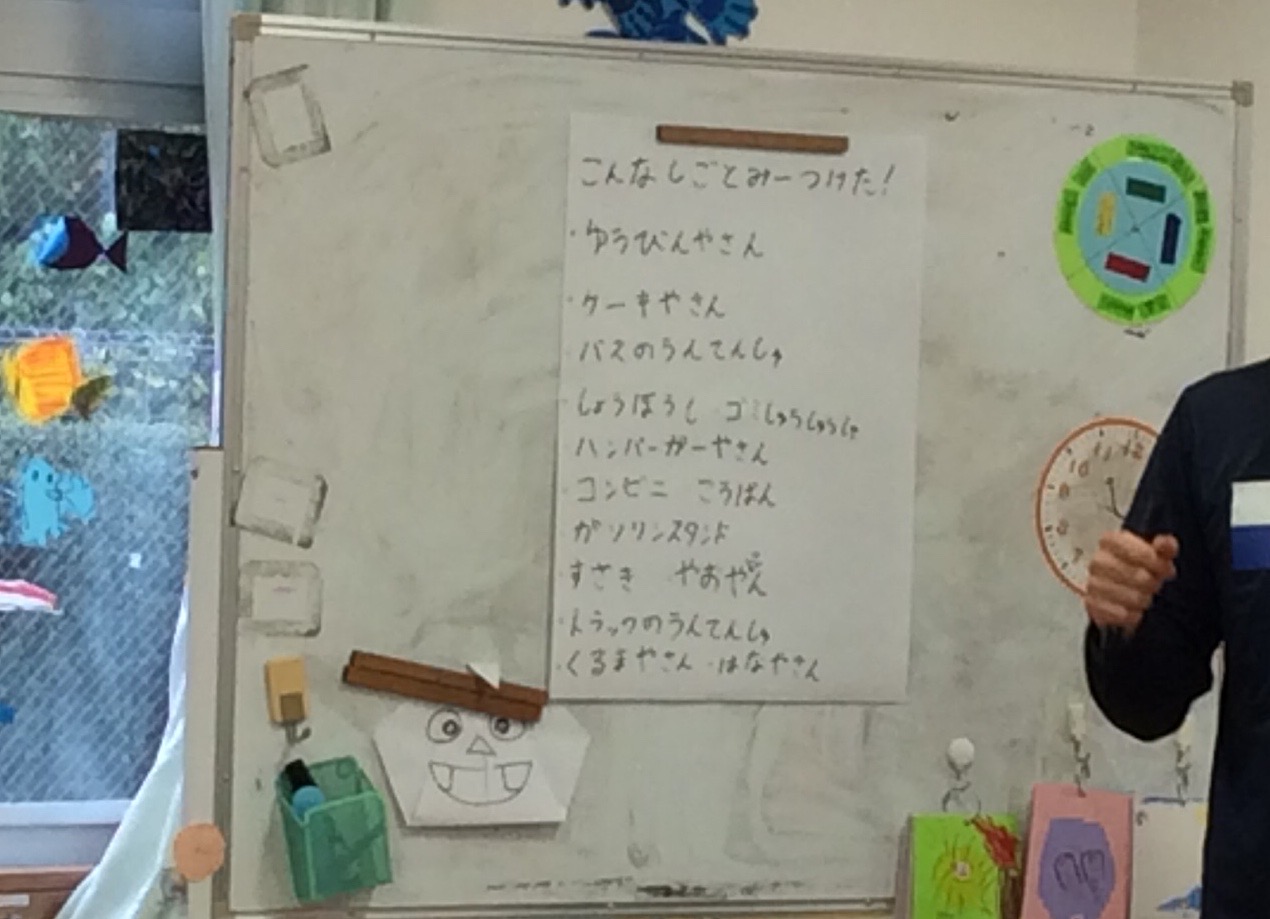 こんなしごとみーつけた!
・ゆうびんやさん
・ケーキやさん
・バスのうんてんしゅ
・しょうぼうし ゴミしゅうしゅうしゃ
・ハンバーガーやさん
・コンビニ こうばん
・ガソリンスタンド
・すさき やおやさん
・トラックのうんてんしゅ
・くるまやさん ・はなやさん
10 11 12
9
8
7